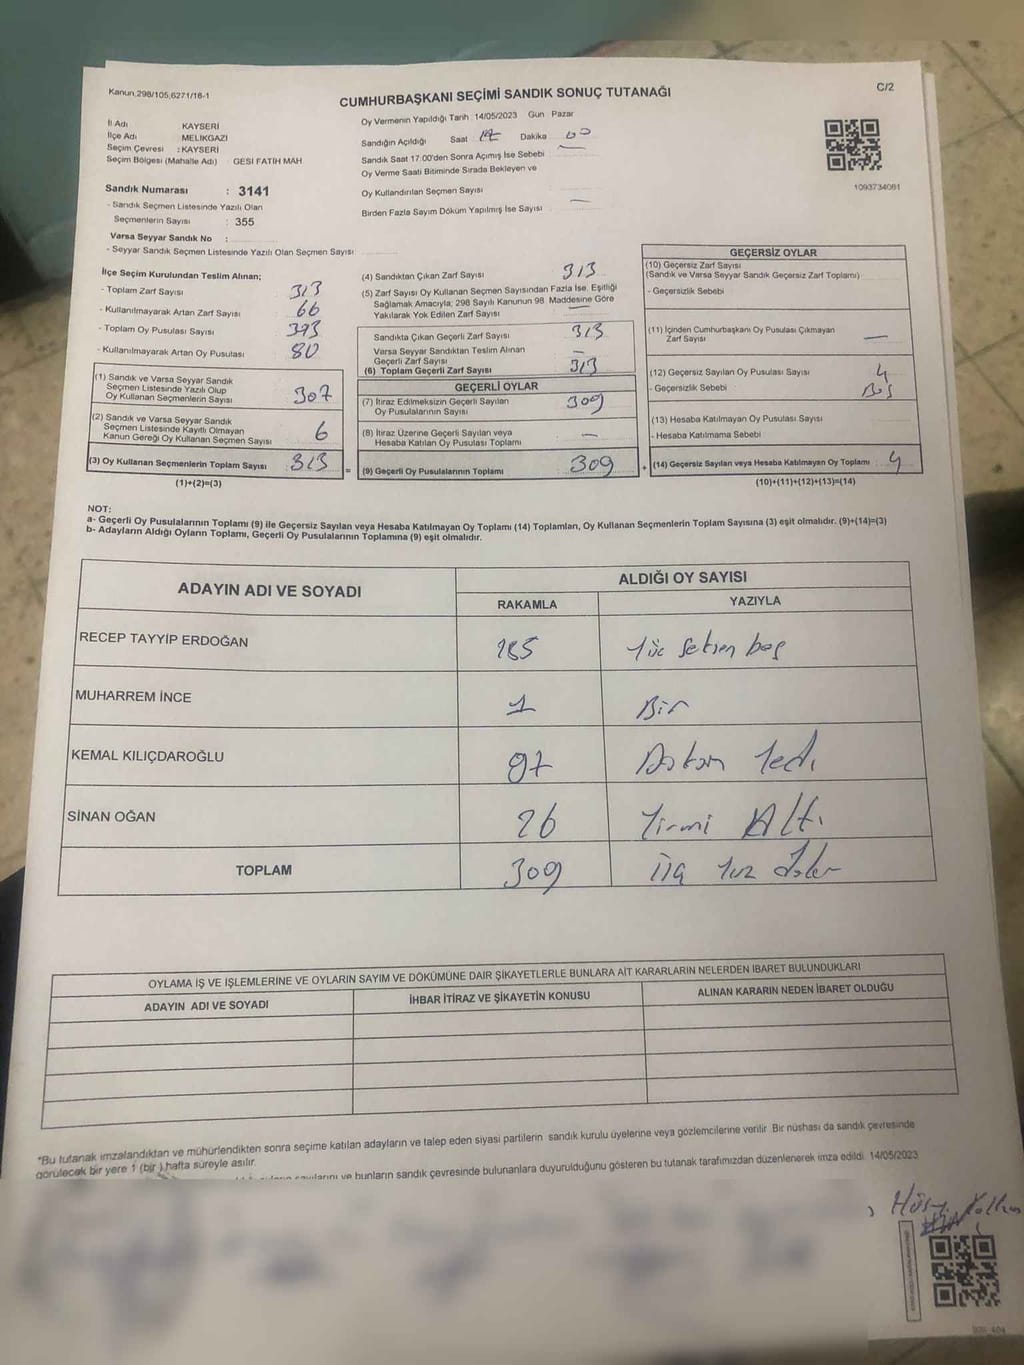 Kanun,298/105,6271/18-1
C/2
CUMHURBAŞKANI SEÇİMİ SANDIK SONUÇ TUTANAĞI
İl Adı KAYSERİ
İlçe Adı MELİKGAZİ
Seçim Çevresi : KAYSERİ
Seçim Bölgesi (Mahalle Adı) GESİ FATİH MAH
Sandık Numarası : 3141
- Sandık Seçmen Listesinde Yazılı Olan
Seçmenlerin Sayısı : 355
Varsa Seyyar Sandık No :
- Seyyar Sandık Seçmen Listesinde Yazılı Olan Seçmen Sayısı
Oy Vermenin Yapıldığı Tarih 14/05/2023 Gün Pazar
Sandığın Açıldığı Saat 17 Dakika 00
Sandık Saat 17.00'den Sonra Açımış İse Sebebi —
Oy Verme Saati Bitiminde Sırada Bekleyen ve
Oy Kullandırılan Seçmen Sayısı
Birden Fazla Sayım Döküm Yapılmış İse Sayısı —
1093734081
İlçe Seçim Kurulundan Teslim Alınan;
- Toplam Zarf Sayısı 313
- Kullanılmayarak Artan Zarf Sayısı 66
- Toplam Oy Pusulası Sayısı 393
- Kullanılmayarak Artan Oy Pusulası 80
(1) Sandık ve Varsa Seyyar Sandık
Seçmen Listesinde Yazılı Olup
Oy Kullanan Seçmenlerin Sayısı 307
(2) Sandık ve Varsa Seyyar Sandık
Seçmen Listesinde Kayıtlı Olmayan
Kanun Gereği Oy Kullanan Seçmen Sayısı 6
(3) Oy Kullanan Seçmenlerin Toplam Sayısı 313 =
(1)+(2)=(3)
(4) Sandıktan Çıkan Zarf Sayısı 313
(5) Zarf Sayısı Oy Kullanan Seçmen Sayısından Fazla İse, Eşitliği
Sağlamak Amacıyla; 298 Sayılı Kanunun 98. Maddesine Göre
Yakılarak Yok Edilen Zarf Sayısı —
Sandıkta Çıkan Geçerli Zarf Sayısı 313
Varsa Seyyar Sandıktan Teslim Alınan
Geçerli Zarf Sayısı —
(6) Toplam Geçerli Zarf Sayısı 313
GEÇERLİ OYLAR
(7) İtiraz Edilmeksizin Geçerli Sayılan
Oy Pusulalarının Sayısı 309
(8) İtiraz Üzerine Geçerli Sayılan veya
Hesaba Katılan Oy Pusulası Toplamı —
(9) Geçerli Oy Pusulalarının Toplamı 309 +
GEÇERSİZ OYLAR
(10) Geçersiz Zarf Sayısı
(Sandık ve Varsa Seyyar Sandık Geçersiz Zarf Toplamı)
- Geçersizlik Sebebi
(11) İçinden Cumhurbaşkanı Oy Pusulası Çıkmayan
Zarf Sayısı —
(12) Geçersiz Sayılan Oy Pusulası Sayısı 4
- Geçersizlik Sebebi Boş
(13) Hesaba Katılmayan Oy Pusulası Sayısı
- Hesaba Katılmama Sebebi
(14) Geçersiz Sayılan veya Hesaba Katılmayan Oy Toplamı 4
(10)+(11)+(12)+(13)=(14)
NOT:
a- Geçerli Oy Pusulalarının Toplamı (9) ile Geçersiz Sayılan veya Hesaba Katılmayan Oy Toplamı (14) Toplamları, Oy Kullanan Seçmenlerin Toplam Sayısına (3) eşit olmalıdır. (9)+(14)=(3)
b- Adayların Aldığı Oyların Toplamı, Geçerli Oy Pusulalarının Toplamına (9) eşit olmalıdır.
ADAYIN ADI VE SOYADI
ALDIĞI OY SAYISI
RAKAMLA YAZIYLA
RECEP TAYYİP ERDOĞAN 185 Yüz Seksen beş
MUHARREM İNCE 1 Bir
KEMAL KILIÇDAROĞLU 97 Doksan Yedi
SİNAN OĞAN 26 Yirmi Altı
TOPLAM 309 Üç Yüz Dokuz
OYLAMA İŞ VE İŞLEMLERİNE VE OYLARIN SAYIM VE DÖKÜMÜNE DAİR ŞİKAYETLERLE BUNLARA AİT KARARLARIN NELERDEN İBARET BULUNDUKLARI
ADAYIN ADI VE SOYADI İHBAR İTİRAZ VE ŞİKAYETİN KONUSU ALINAN KARARIN NEDEN İBARET OLDUĞU
*Bu tutanak imzalandıktan ve mühürlendikten sonra seçime katılan adayların ve talep eden siyasi partilerin sandık kurulu üyelerine veya gözlemcilerine verilir. Bir nüshası da sandık çevresinde
görülecek bir yere 1 (bir) hafta süreyle asılır.
sayılarını ve bunların sandık çevresinde bulunanlara duyurulduğunu gösteren bu tutanak tarafımızdan düzenlenerek imza edildi. 14/05/2023